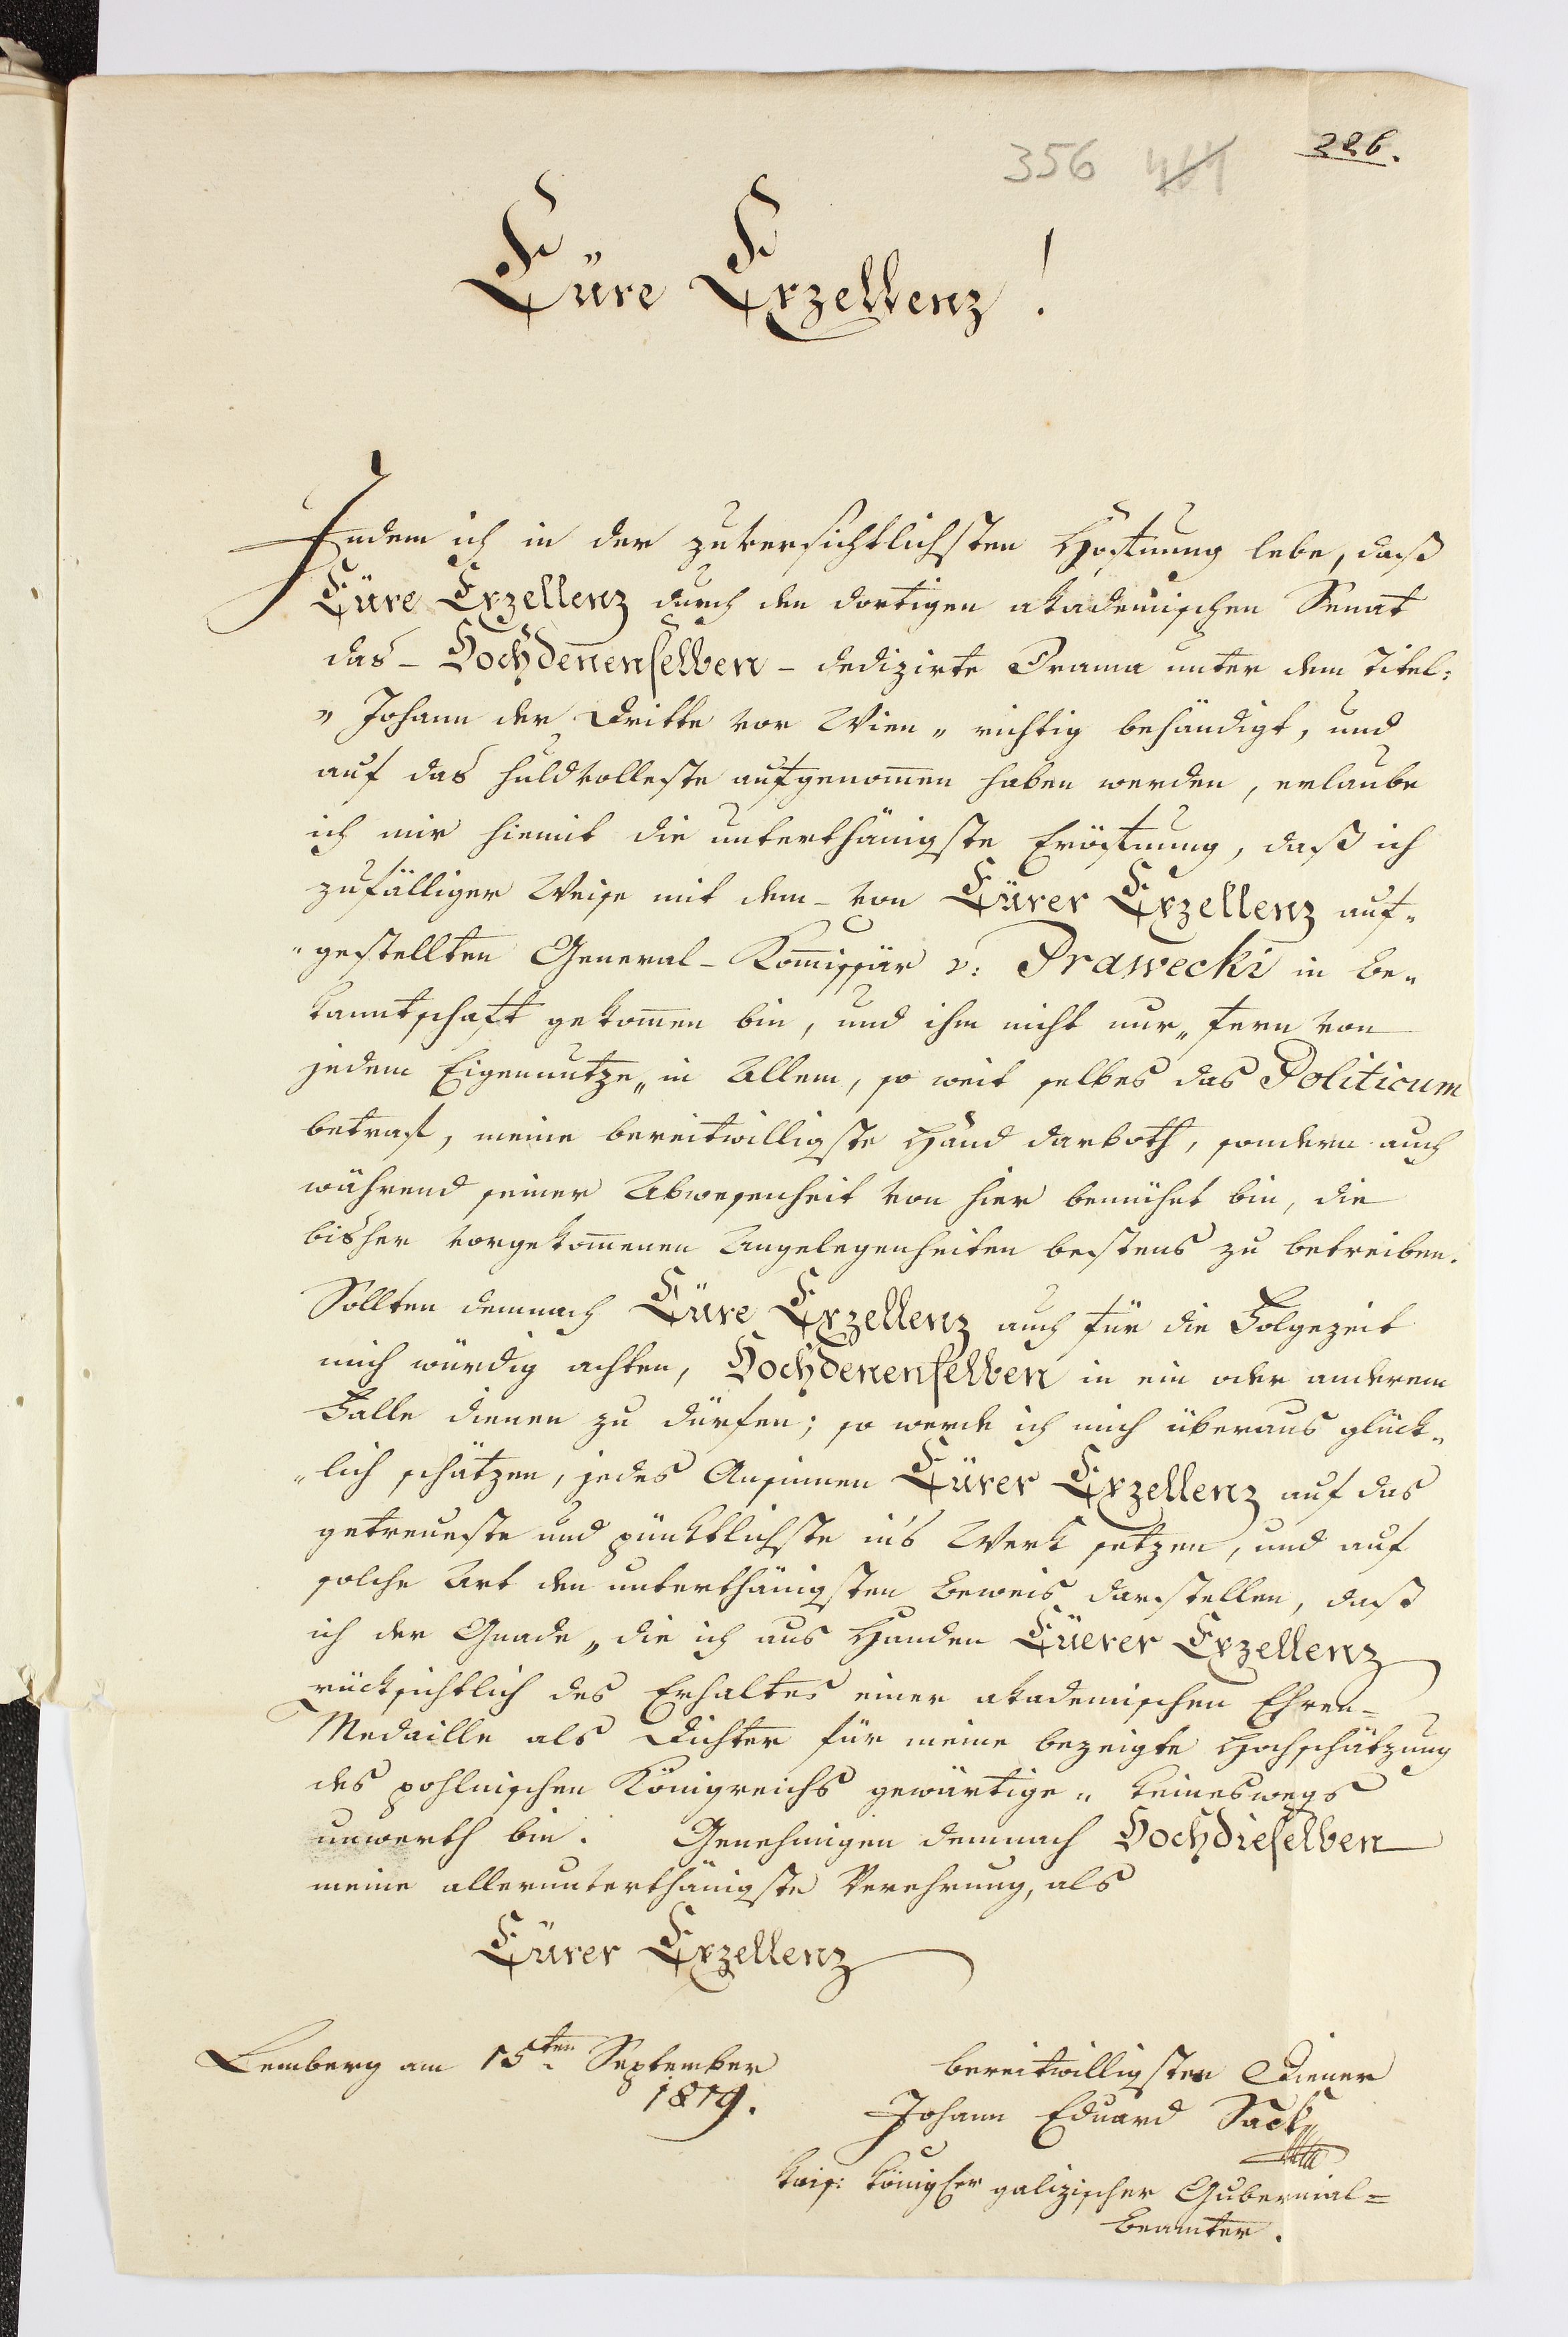 356 464 226.
Eüre Exzellenz!
Indem ich in der zuversichtlichsten Hoffnung lebe, daß
Eüre Exzellenz durch den dortigen akademischen Senat
das - Hochdenenselben - dedizirte Drama unter dem Titel:
„Johann der Dritte vor Wien„ richtig behändigt, und
auf das huldvolleste aufgenom̄en haben werden, erlaube
ich mir hiemit die unterthänigste Eröffnung, daß ich
zufälliger Weise mit dem - von Eürer Exzellenz auf„
„gestellten General-Kom̄issär v: Prawecki in Be„
kanntschaft gekom̄en bin, und ihm nicht nur„ fern von
jedem Eigennutze„ in Allem, so weit selbes das Politicum
betraf, meine bereitwilligste Hand darboth, sondern auch
während seiner Abwesenheit von hier bemühet bin, die
bisher vorgekom̄enen Angelegenheiten bestens zu betreiben.
Sollten demnach Eüre Exzellenz auch für die Folgezeit
mich würdig achten, Hochdenenselben in ein oder anderem
Falle dienen zu dürfen; so werde ich mich überaus glück„
„lich schätzen, jedes Ansinnen Eürer Exzellenz auf das
getreueste und pünktlichste in's Werk setzen, und auf
solche Art den unterthänigsten Beweis darstellen, daß
ich der Gnade„ die ich aus Handen Eüerer Exzellenz
rücksichtlich des Erhaltes einer akademischen Ehren-
Medaille als Dichter für meine bezeigte Hochschätzung
des pohlnischen Königreichs gewärtige„ keineswegs
unwerth bin. Genehmigen demnach Hochdieselben
meine allerunterthänigste Verehrung, als
Eürer Exzellenz
Lemberg am 15ten September
1819.
bereitwilligster Diener
Johann Eduard Sack
kais: königlher galizischer Gubernial=
beamter.